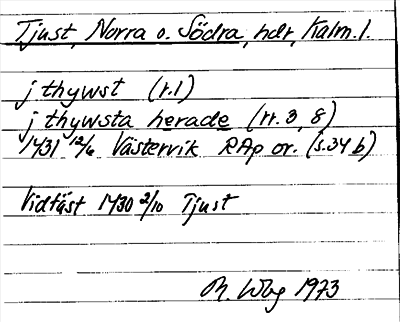 Tjust, Norra o. Södra, hdr, Kalm. l.
j thywst (r. 1)
j thywsta herade (rr. 3, 8)
1431 12/6 Västervik RAp or. (s. 34 b)
Vidfäst 1430 2/10 Tjust
1973